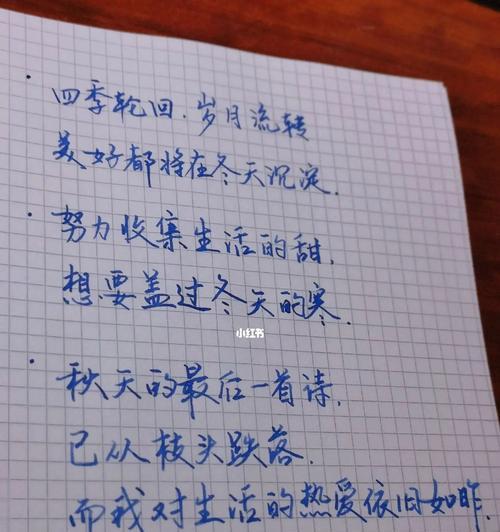 · 四季轮回.岁月流转
美好都将在冬天沉淀.
· 努力收集生活的甜.
想要盖过冬天的寒.
小红书
· 秋天的最后一首诗.
已从枝头跌落.
而我对生活的热爱依旧如昨.